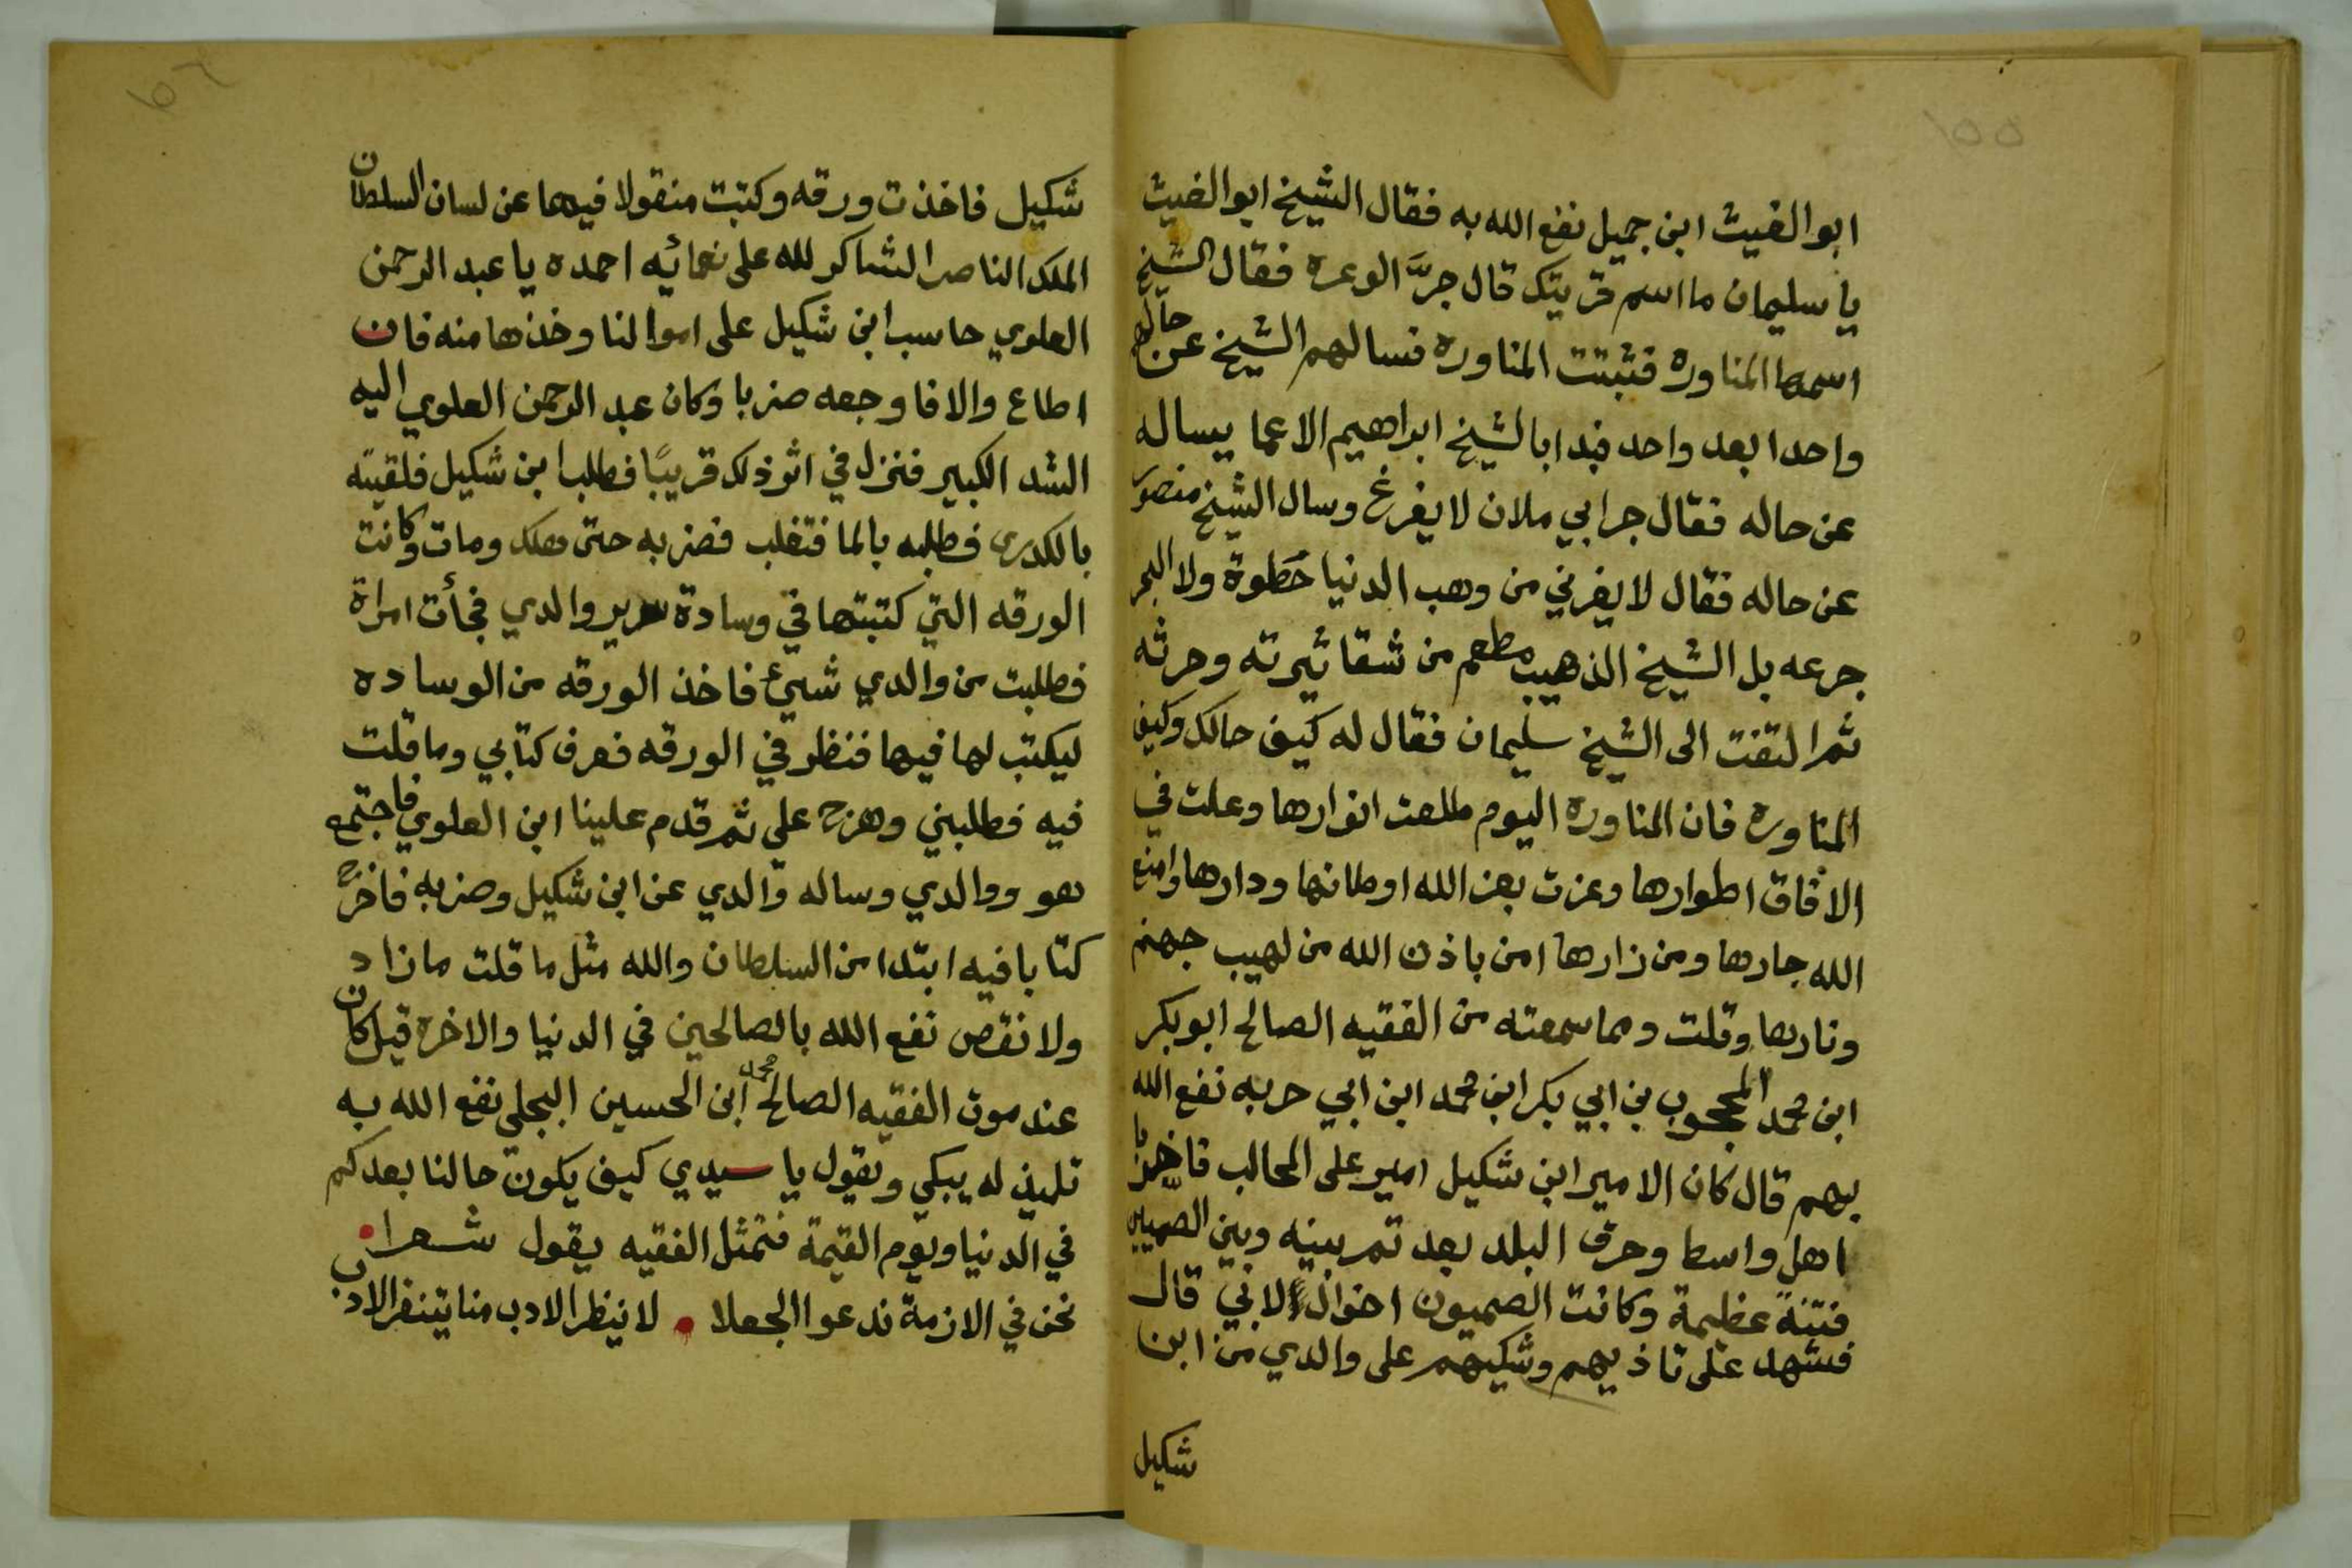 ١٥٥
ابو الغيث ابن جميل نفع الله به فقال الشيخ ابو الغيث
يا سليمان ما اسم قريتك قال جرَّ الوعره فقال الشيخ
اسمها المناوره فثبتت المناوره فسالهم الشيخ عن حالهم
واحدا بعد واحد فبدا بالشيخ ابراهيم الاعما يساله
عن حاله فقال جرابي ملان لا يفرغ وسال الشيخ منصور
عن حاله فقال لا يغرني من وهب الدنيا خطوة ولا البحر
جرعه بل الشيخ الذهيب مطعم من شقا ثيرته وحرثه
ثم التفت الى الشيخ سليمان فقال له كيف حالك وكيف
المناوره فان المناوره اليوم طلعت انوارها وعلت في
الافاق اطوارها وعزت بعز الله اوطانها ودارها وامنع
الله جارها ومن زارها امن باذن الله من لهيب جهنم
ونارها وقلت ومما سمعته من الفقيه الصالح ابو بكر
ابن محمد المحجوب بن ابي بكر ابن محمد ابن ابي حربه نفع الله
بهم قال كان الامير ابن شكيل امير على المحالب فاخرب
اهل واسط وحرق البلد بعد تمر بينه وبين الصميين
فتنة عظيمة وكانت الصميون اخوال لابي قال
فشهد على تاذيهم وشكيهم على والدي من ابن
شكيل
شكيل فاخذت ورقه وكتبت منقولا فيها عن لسان السلطان
الملك الناصر الشاكر لله على نعمائه احمده يا عبد الرحمن
العلوي حاسب ابن شكيل على اموالنا وخذها منه فان
اطاع والا فاوجعه ضربا وكان عبد الرحمن العلوي اليه
الشد الكبير فنزل في اثر ذلك قريبًا فطلب ابن شكيل فلقيته
بالكدرى فطلبه بالما فتغلب فضربه حتى هلك ومات وكانت
الورقه التي كتبتها في وسادة سرير والدي فجأت امراة
فطلبت من والدي شيئ فاخذ الورقه من الوساده
ليكتب لها فيها فنظر في الورقه فعرف كتابي وما قلت
فيه فطلبني وهزح على ثم قدم علينا ابن العلوي فاجتمع
هو ووالدي وساله والدي عن ابن شكيل وضربه فاخرج
كتابا فيه ابتدا من السلطان والله مثل ما قلت ما زاد
ولا نقص نفع الله بالصالحين في الدنيا والاخره قيل كان
عند موت الفقيه الصالح محمد ابن الحسين البجلي نفع الله به
تلميذ له يبكي ويقول يا سيدي كيف يكون حالنا بعدكم
في الدنيا ويوم القيمة فتمثل الفقيه يقول شعرا
نحن في الازمة ندعوا الجفلا لا ينظر الادب منا يتنفر الادب